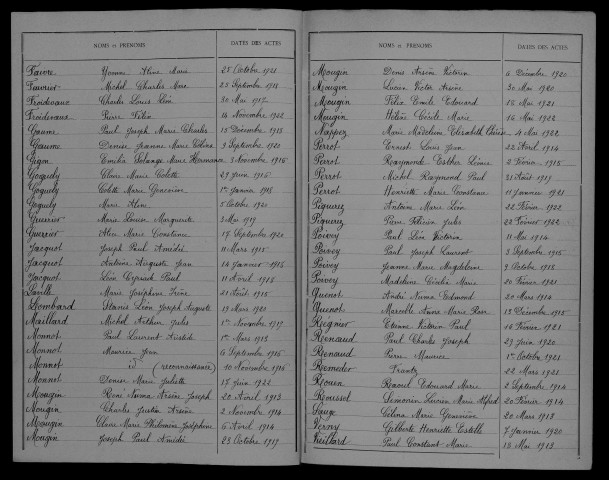 NOMS et PRÉNOMS DATES DES ACTES
Faivre Yvonne Aline Marie 25 Octobre 1921
Feuvrier Michel Charles Marc 25 Septembre 1915
Froidevaux Charles Louis Léon 30 Mai 1917
Froidevaux Pierre Félix 14 Novembre 1922
Gaume Paul Joseph Marie Charles 15 Décembre 1913
Gaume Denise Jeanne Marie 9 Septembre 1920
Gigon Emilia Solange Marie 3 Novembre 1916
Goguely Claire Marie Colette 29 Juin 1915
Goguely Colette Marie Geneviève 1er Janvier 1918
Goguely Marie Aline 5 Octobre 1920
Guerrier Marie Louise Marguerite 3 Mai 1919
Guerrier Alice Marie Constance 17 Septembre 1920
Jacquot Joseph Paul Amédée 11 Mars 1915
Jacquot Antoine Auguste Jean 14 Janvier 1918
Jacquot Léon Cyriaque Paul 11 Avril 1918
Marie Joséphine Irène 21 Août 1915
Liombard Stanis Léon Joseph Auguste 19 Mars 1920
Maillard Michel Arthur Jules 1er Novembre 1917
Monnot Paul Laurent Aristide 1er Mars 1913
Monnot Maurice Jean 6 Septembre 1916
Monnot d° (reconnaissance) 10 Novembre 1916
Monnot Denise Marie Juliette 17 Juin 1922
Mougin René Numa Arsène Joseph 20 Avril 1913
Mougin Charles Justin Arsène 2 Novembre 1914
Mougin Claire Marie Philomène Joséphine 6 Avril 1914
Mougin Joseph Paul Amédée 23 Octobre 1919
NOMS et PRÉNOMS DATES DES ACTES
Mougin Denis Arsène Victorin 6 Décembre 1920
Mougin Lucien Victor Arsène 30 Mai 1920
Mougin Félix Emile Edouard 18 Mai 1921
Mougin Hélène Cécile Marie 16 Mai 1922
Nappez Marie Madeleine Elisabeth Thérèse 4 Mai 1922
Perrot Ernest Louis Jean 22 Avril 1914
Perrot Raymonde Esther Léonie 2 Février 1915
Perrot Michel Raymond Paul 31 Août 1917
Perrot Henriette Marie Constance 11 Janvier 1921
Piquerez Antoine Marie Léon 22 Février 1922
Piquerez Pierre Félicien Jules 22 Février 1922
Poivey Paul Léon Victorin 11 Mai 1914
Poivey Paul Joseph Laurent 3 Septembre 1916
Poivey Jeanne Marie Magdeleine 9 Octobre 1918
Poivey Madeleine Cécile Marie 20 Février 1921
Quenot André Numa Edmond 20 Mars 1914
Quenot Marcelle Anne Marie Rose 13 Décembre 1915
Régnier Etienne Victorin Paul 16 Février 1921
Renaud Paul Charles Joseph 29 Juin 1920
Renaud Pierre Maurice 1er Octobre 1921
Frantz 22 Mars 1921
Raoul Edouard Marie 2 Septembre 1914
Roussel Lucien Marie Alfred 20 Février 1914
Sauge Célina Marie Geneviève 20 Mars 1918
Verny Gilberte Henriette Estelle 7 Janvier 1920
Vieillard Paul Constant Marie 15 Mai 1913